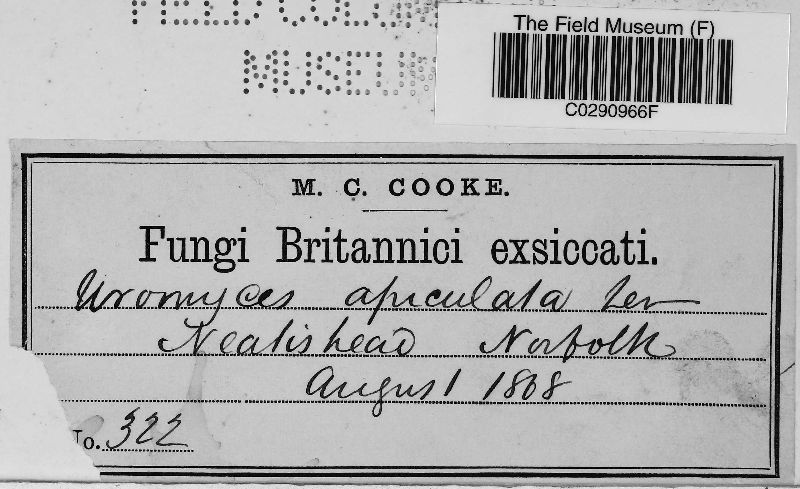 MUSEUM
The Field Museum (F)
C0290966F
M. C. COOKE.
Fungi Britannici exsiccati.
Uromyces apiculata Lev
Neatishead Norfolk
August 1868
No. 322